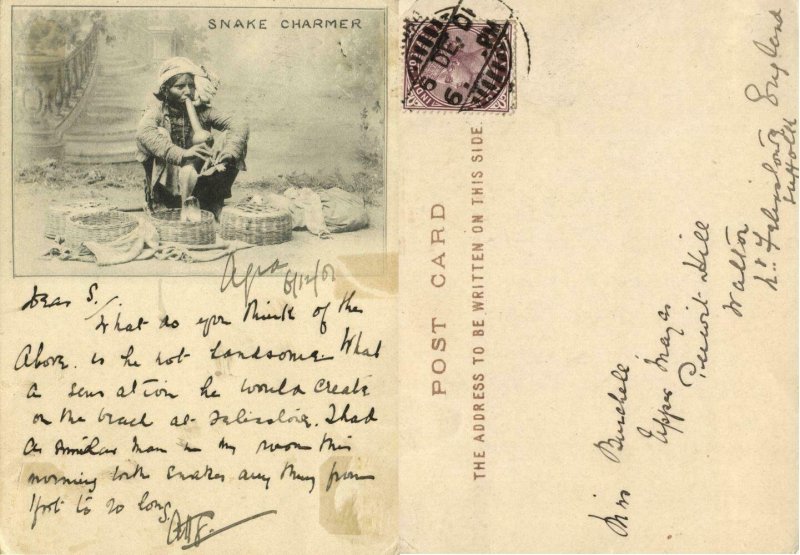 SNAKE CHARMER
Agra 6/12/01
Dear S.
What do you think of the
Above. is he not handsome What
a sensation he would create
on the beach at Felixstowe. I had
a similar man in my room this
morning with snakes any thing from
1 foot to 20 long.
INDIA
6 DE. 01
6. PM
POST CARD
THE ADDRESS TO BE WRITTEN ON THIS SIDE
Miss Burchell
Upper
Peewit Hill
Walton
Nr Felixstowe
Suffolk
England